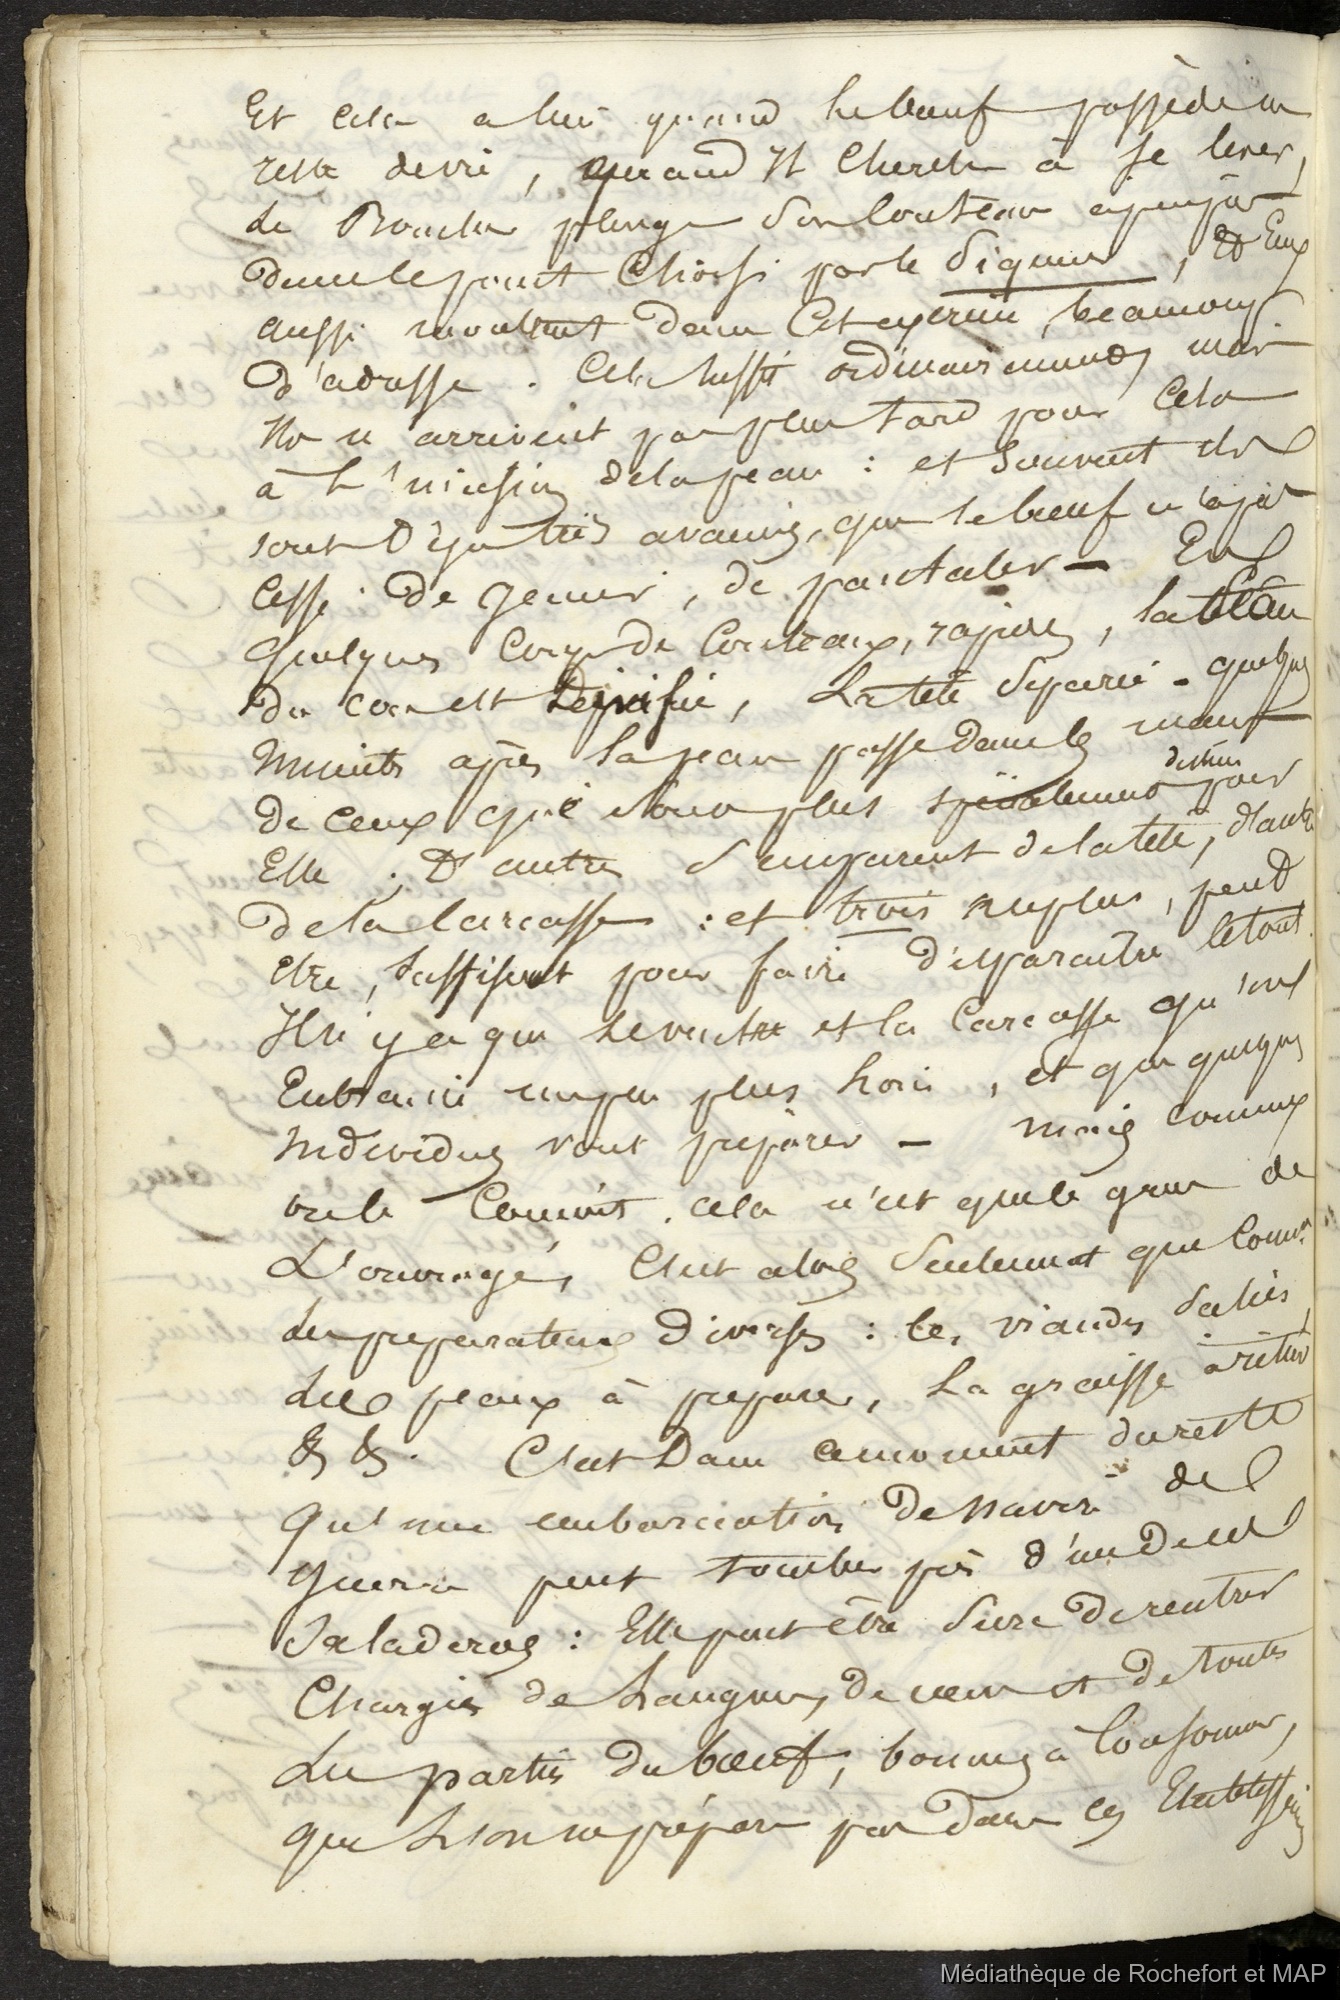 Et cela a lieu quand le bœuf possède un
reste de vie, quand il cherche à se lever,
Le Boucher plonge son couteau
dans le point choisi par le Signeur, Et Eux
aussi montrent dans cet exercice beaucoup
d'adresse. Cela suffit ordinairement, mais
ils n'arrivent pas plus tard pour cela
à l'incision de la peau : et souvent ils
sont déjà très avancés, que le bœuf n'a pas
cessé de gemir, de pantaler — En
quelques coups de couteaux, rapides,
du cou est, la tête separée - quelques
minutes après la peau passe dans les mains
de ceux qui sont plus spécialement destinés pour
Elle ; D'autres s'emparent de la tête, d'autres
de la carcasse : et trois au plus, peut
etre, suffisent pour faire disparaitre le tout.
Il n'y a que le ventre et la carcasse qu'on
Entraine un peu plus loin, et que quelques
individus vont preparer — mais comme
on le conçoit, cela n'est que le gros de
L'ouvrage, C'est alors seulement que comm.
les preparations diverses : les viandes salées,
les peaux à preparer, la graisse à retirer
&, &. C'est Dans ce moment du reste
qu'une embarcation de navire de
guerre peut tomber près d'un de ces
Saladeros : Elle peut être sure de rentrer
Chargée de Langues, de cœurs et de toutes
Les parties du bœuf, bonnes à consommer,
que l'on ne prépare pas dans ces Etablissem
Médiathèque de Rochefort et MAP